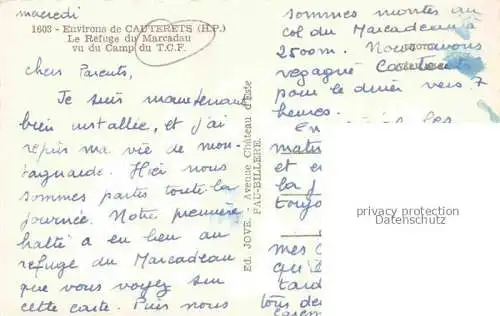 mercredi
1603 - Environs de CAUTERETS (H.P.)
Le Refuge du Marcadau
vu du Camp du T.C.F.
chers Parents,
Je suis maintenant
bien installée, et j'ai
repris ma vie de mon-
tagnarde. Hier nous
sommes partis toute la
journée. Notre première
halte a eu lieu au
refuge du Marcadeau
que vous voyez sur
cette carte. Puis nous
Ed. JOVE. - Avenue Château d'Este
PAU-BILLÈRE.
sommes montés au
col du Marcadeau à
2500m. Nous avons
regagné Cauterets
pour le dîner vers 7
heures.
En
matin
et e
la j
toujo
mes c
qu'
tard
tous de
privacy protection
Datenschutz